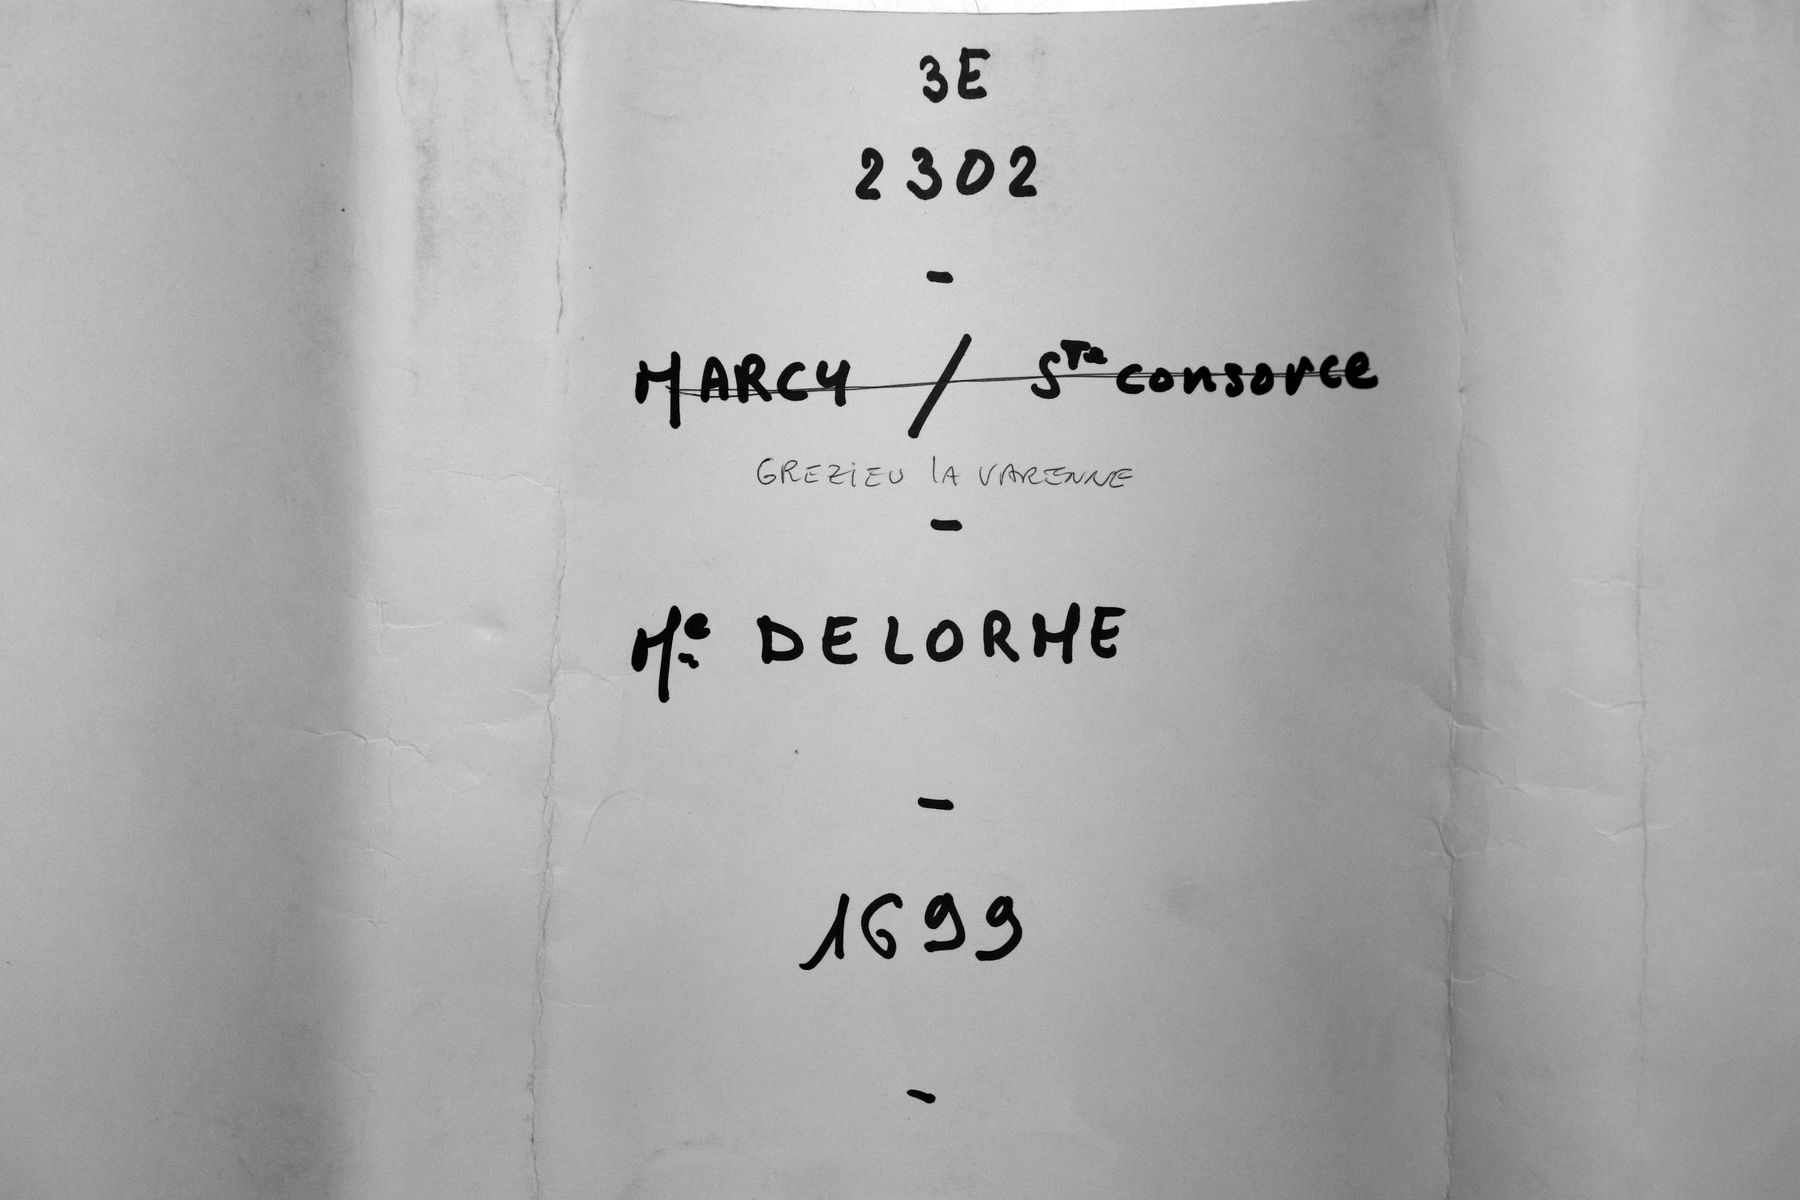 3E
2302
-
MARCY / Ste consorce
GREZIEU LA VARENNE
-
Me DELORME
-
1699
-